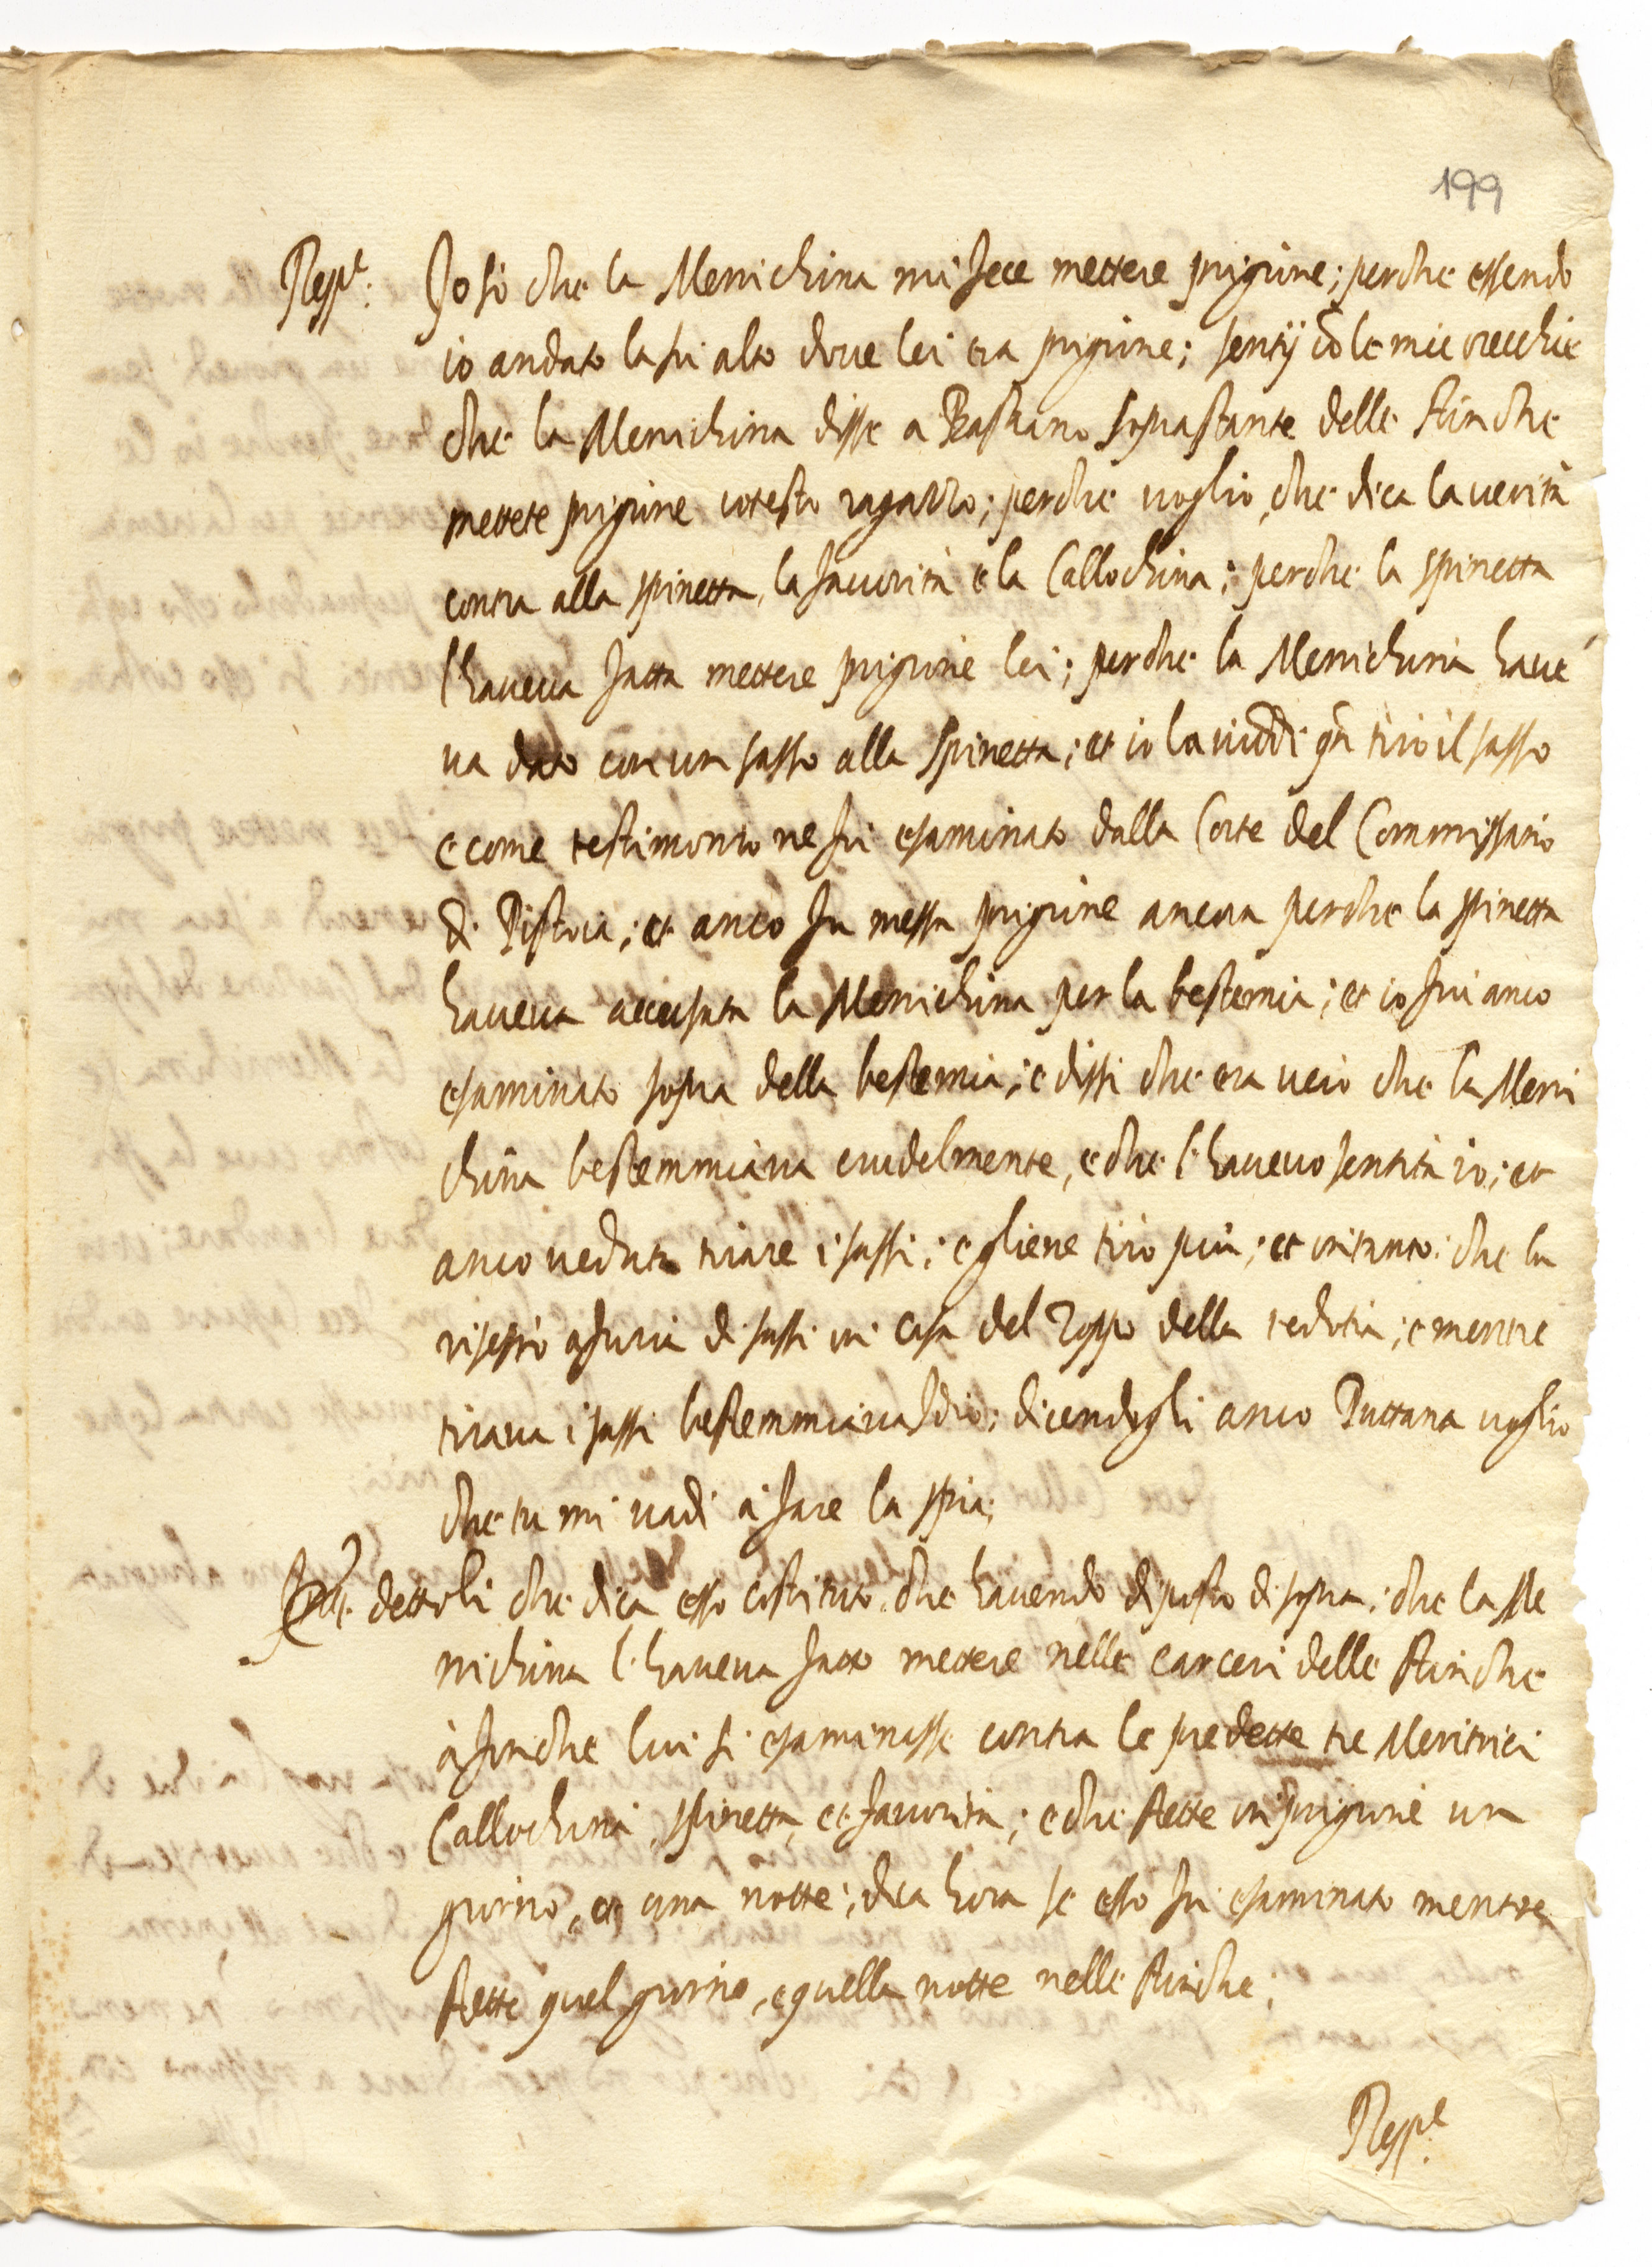 199
Resp.e: Io sò che la Menichina mi fece mettere prigione; perche essendo
io andato la sù alto dove lei era prigione; sentij cō le mie orecchie
che la Menichina disse a Bastiano soprastante delle stinche
mettete prigione cotesto ragazzo; perche voglio, che dica la verità
contra alla spinetta, la favorita e la Callochina; perche la spinetta
l'haveva fatta mettere prigione lei; perche la Menichina have
va dato con un sasso alla spinetta; et io la viddi qn̄ tirò il sasso
e come testimonio ne fui esaminato dalla Corte del Commissario
di Pistoia; et anco fu messa prigione ancora perche la spinetta
haveva accusata la Menichina per la bestemia; et io fui anco
esaminato sopra della bestemia; e dissi che era vero che la Meni
china bestemmiava crudelmente, e che l'havevo sentita io; et
anco veduta tirare i sassi; e gliene tirò più; et intanto che la
risserrò a furia di sassi in casa del Zoppo della; e mentre
tirava i sassi bestemmiava Idio; dicendogli anco Puttana voglio
che tu mi vadi à fare la spia;
dettoli che dica esso costituto che havendo diposto di sopra; che la Me
nichina l'haveva fatto mettere nelle carceri delle stinche
à finche lui si esaminasse contra le predette tre Meritrici
Callochina, spinetta, et favorita; e che stette in prigione un
giorno, et una notte; dica hora se esso fu esaminato mentre
stette quel giorno, e quella notte nelle stinche;
Resp.e